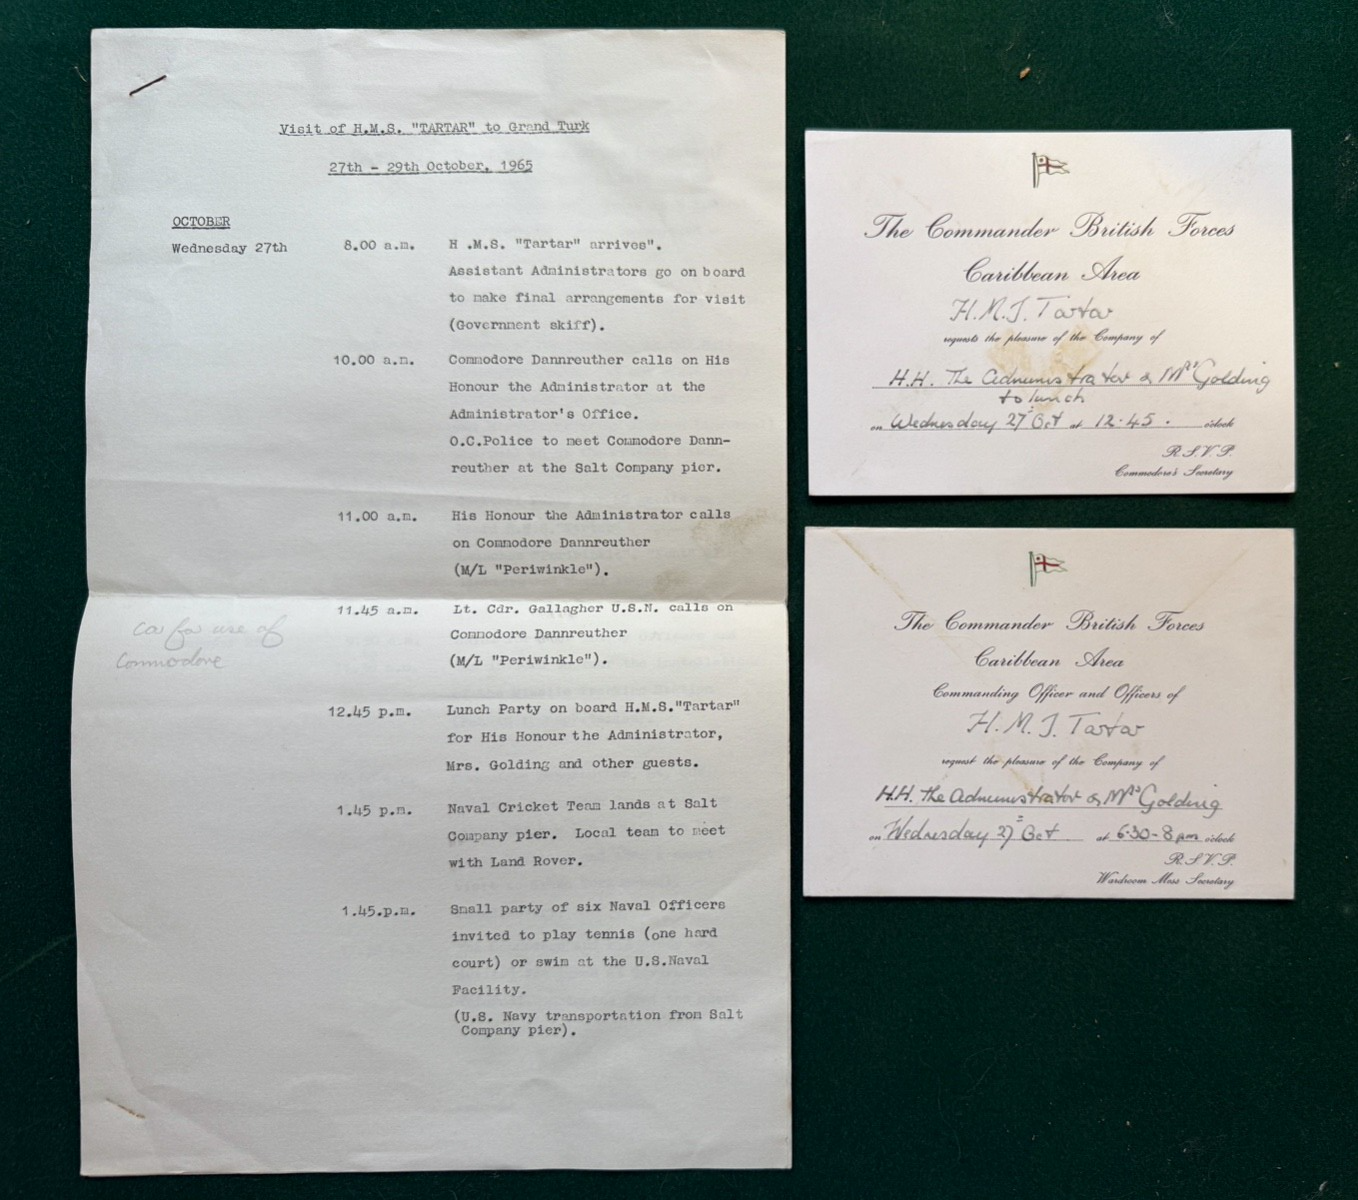 Visit of H.M.S. "TARTAR" to Grand Turk
27th - 29th October, 1965
OCTOBER
Wednesday 27th 8.00 a.m. H .M.S. "Tartar" arrives".
Assistant Administrators go on board
to make final arrangements for visit
(Government skiff).
10.00 a.m. Commodore Dannreuther calls on His
Honour the Administrator at the
Administrator's Office.
O.C.Police to meet Commodore Dann-
reuther at the Salt Company pier.
11.00 a.m. His Honour the Administrator calls
on Commodore Dannreuther
(M/L "Periwinkle").
11.45 a.m. Lt. Cdr. Gallagher U.S.N. calls on
Commodore Dannreuther
(M/L "Periwinkle").
car for use of
Commodore
12.45 p.m. Lunch Party on board H.M.S."Tartar"
for His Honour the Administrator,
Mrs. Golding and other guests.
1.45 p.m. Naval Cricket Team lands at Salt
Company pier. Local team to meet
with Land Rover.
1.45.p.m. Small party of six Naval Officers
invited to play tennis (one hard
court) or swim at the U.S.Naval
Facility.
(U.S. Navy transportation from Salt
Company pier).
The Commander British Forces
Caribbean Area
H.M.S. Tartar
requests the pleasure of the Company of
H.H. The Administrator & Mrs Golding
to lunch
on Wednesday 27th Oct at 12.45. o'clock
R.S.V.P.
Commodore's Secretary
The Commander British Forces
Caribbean Area
Commanding Officer and Officers of
H.M.S. Tartar
request the pleasure of the Company of
H.H. The Administrator & Mrs Golding
on Wednesday 27th Oct at 6.30-8pm o'clock
R.S.V.P.
Wardroom Mess Secretary